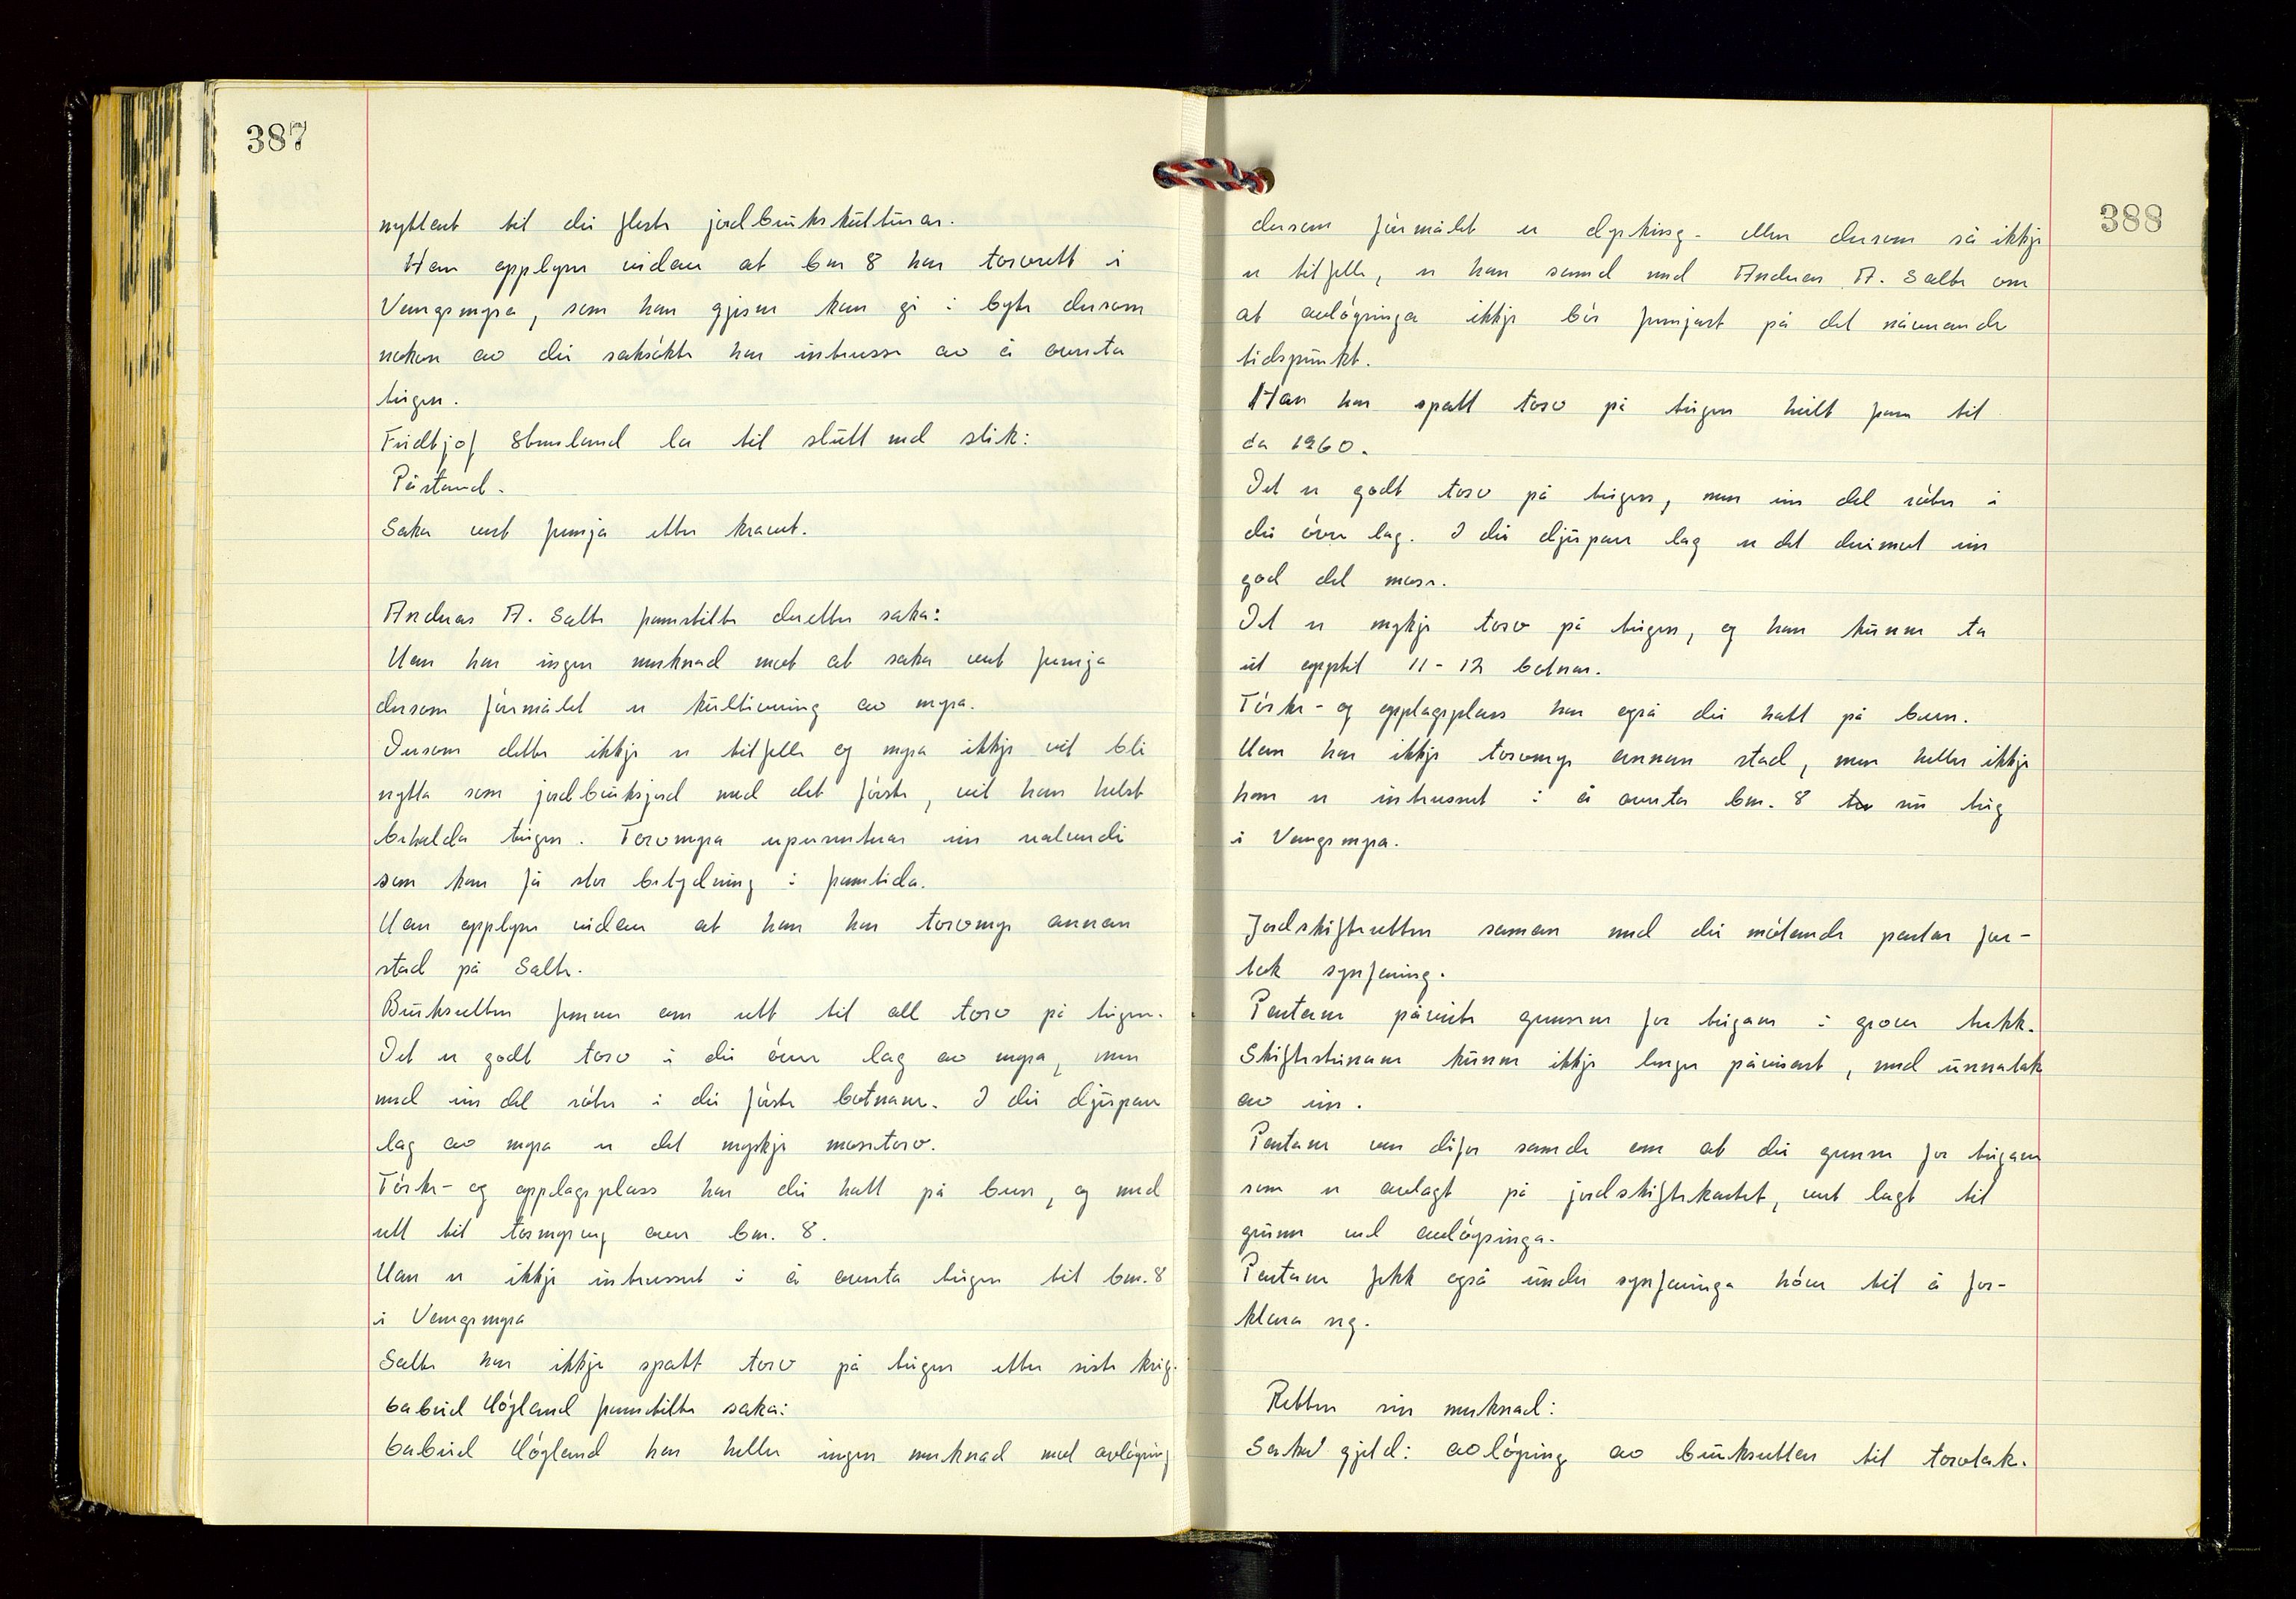 387
nyttast til dei fleste jordbrukskulturar.
Han opplyser vidare at bnr 8 har torvrett i
Vangsmyra, som han gjerne kan gi i byte dersom
nokon av dei saksøkte har interesse av å overta
teigen.
Fridtjof Stumland la til slutt ned slik:
Påstand.
Saka vert fremja etter kravet.
Andreas A. Salte framstilte deretter saka:
Han har ingen merknad mot at saka vert fremja
dersom føremålet er kultivering av myra.
Dersom dette ikkje er tilfelle og myra ikkje vil bli
nytta som jordbruksjord med det første, vil han helst
behalda teigen. Torvmyra representerar ein verdi
som kan få stor betydning i framtida.
Han opplyser vidare at han har torvmyr annan
stad på Salte.
Bruksretten femner om rett til all torv på teigen.
Det er godt torv i dei øvre lag av myra, men
med ein del røter i dei første botnane. I dei djupare
lag av myra er det mykje mosetorv.
Tørke- og opplagsplass har dei hatt på bnr, og med
rett til tormyrveg over bnr. 8.
Han er ikkje interessert i å overta teigen til bnr. 8
i Vangsmyra
Salte har ikkje spatt torv på teigen etter siste krig.
Gabriel Høgland framstilte saka:
Gabriel Høgland har heller ingen merknad mot avløysing
388
dersom føremålet er dyrking. Men dersom så ikkje
er tilfelle, er han samd med Andreas A. Salte om
at avløysinga ikkje bør fremjast på det nåverande
tidspunkt.
Han har spatt torv på teigen heilt fram til
ca 1960.
Det er godt torv på teigen, men ein del røter i
dei øvre lag. I dei djupare lag er det derimot ein
god del mose.
Det er mykje torv på teigen, og han kunne ta
ut opptil 11-12 botnar.
Tørke- og opplagsplass har også dei hatt på bnr.
Han har ikkje torvmyr annan stad, men heller ikkje
han er interessert i å overta bnr. 8 sin teig
i Vangsmyra.
Jordskifteretten saman med dei møtande partar fore-
tok synfaring.
Partane påviste grensene for teigane i grove trekk.
Skiftesteinane kunne ikkje lenger påvisast, med unnatak
av ein.
Partane var difor samde om at dei grenser for teigane
som er avlagt på jordskiftekartet, vert lagt til
grunn ved avløysinga.
Partane fekk også under synfaringa høve til å for-
klara seg.
Retten sin merknad:
Saka gjeld: avløysing av bruksretten til torvtak.